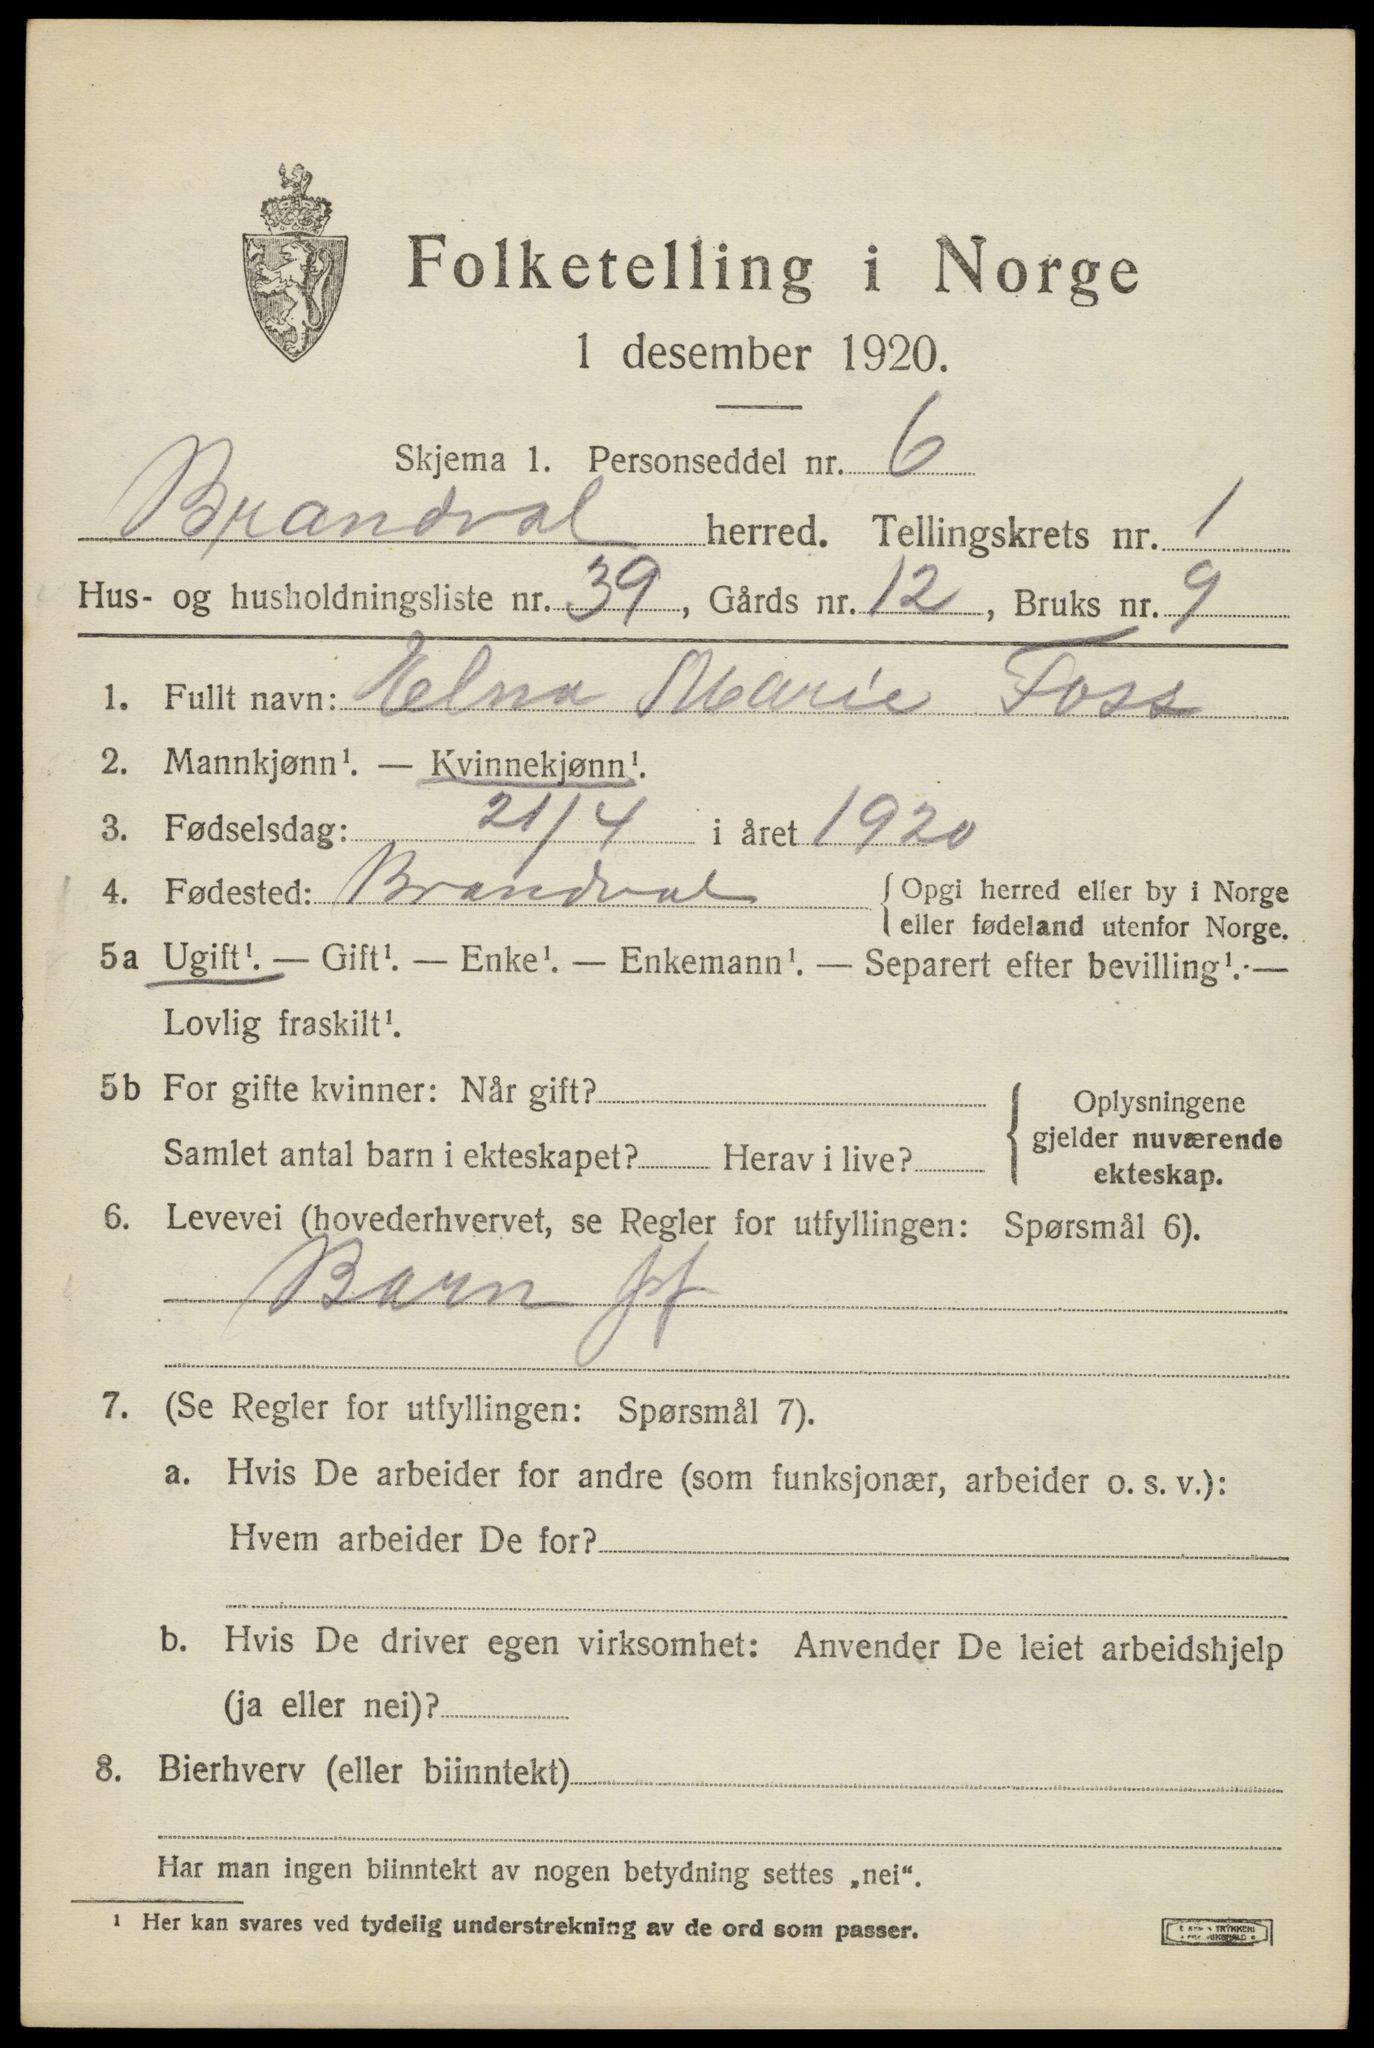 Folketelling i Norge
1 desember 1920.
Skjema 1. Personseddel nr. 6
Brandval herred. Tellingskrets nr. 1
Hus- og husholdningsliste nr. 39, Gårds nr. 12, Bruks nr. 9
1. Fullt navn: Elna Marie Foss
2. Mannkjønn¹. — Kvinnekjønn¹.
3. Fødselsdag: 21/4 i året 1920
4. Fødested: Brandval { Opgi herred eller by i Norge
eller fødeland utenfor Norge.
5a Ugift¹. — Gift¹. — Enke¹. — Enkemann¹. — Separert efter bevilling¹. —
Lovlig fraskilt¹.
5b For gifte kvinner: Når gift?
Samlet antal barn i ekteskapet? Herav i live?
{ Oplysningene
gjelder nuværende
ekteskap.
6. Levevei (hovederhvervet, se Regler for utfyllingen: Spørsmål 6).
Barn
7. (Se Regler for utfyllingen: Spørsmål 7).
a. Hvis De arbeider for andre (som funksjonær, arbeider o. s. v.):
Hvem arbeider De for?
b. Hvis De driver egen virksomhet: Anvender De leiet arbeidshjelp
(ja eller nei)?
8. Bierhverv (eller biinntekt)
Har man ingen biinntekt av nogen betydning settes „nei“.
¹ Her kan svares ved tydelig understrekning av de ord som passer.